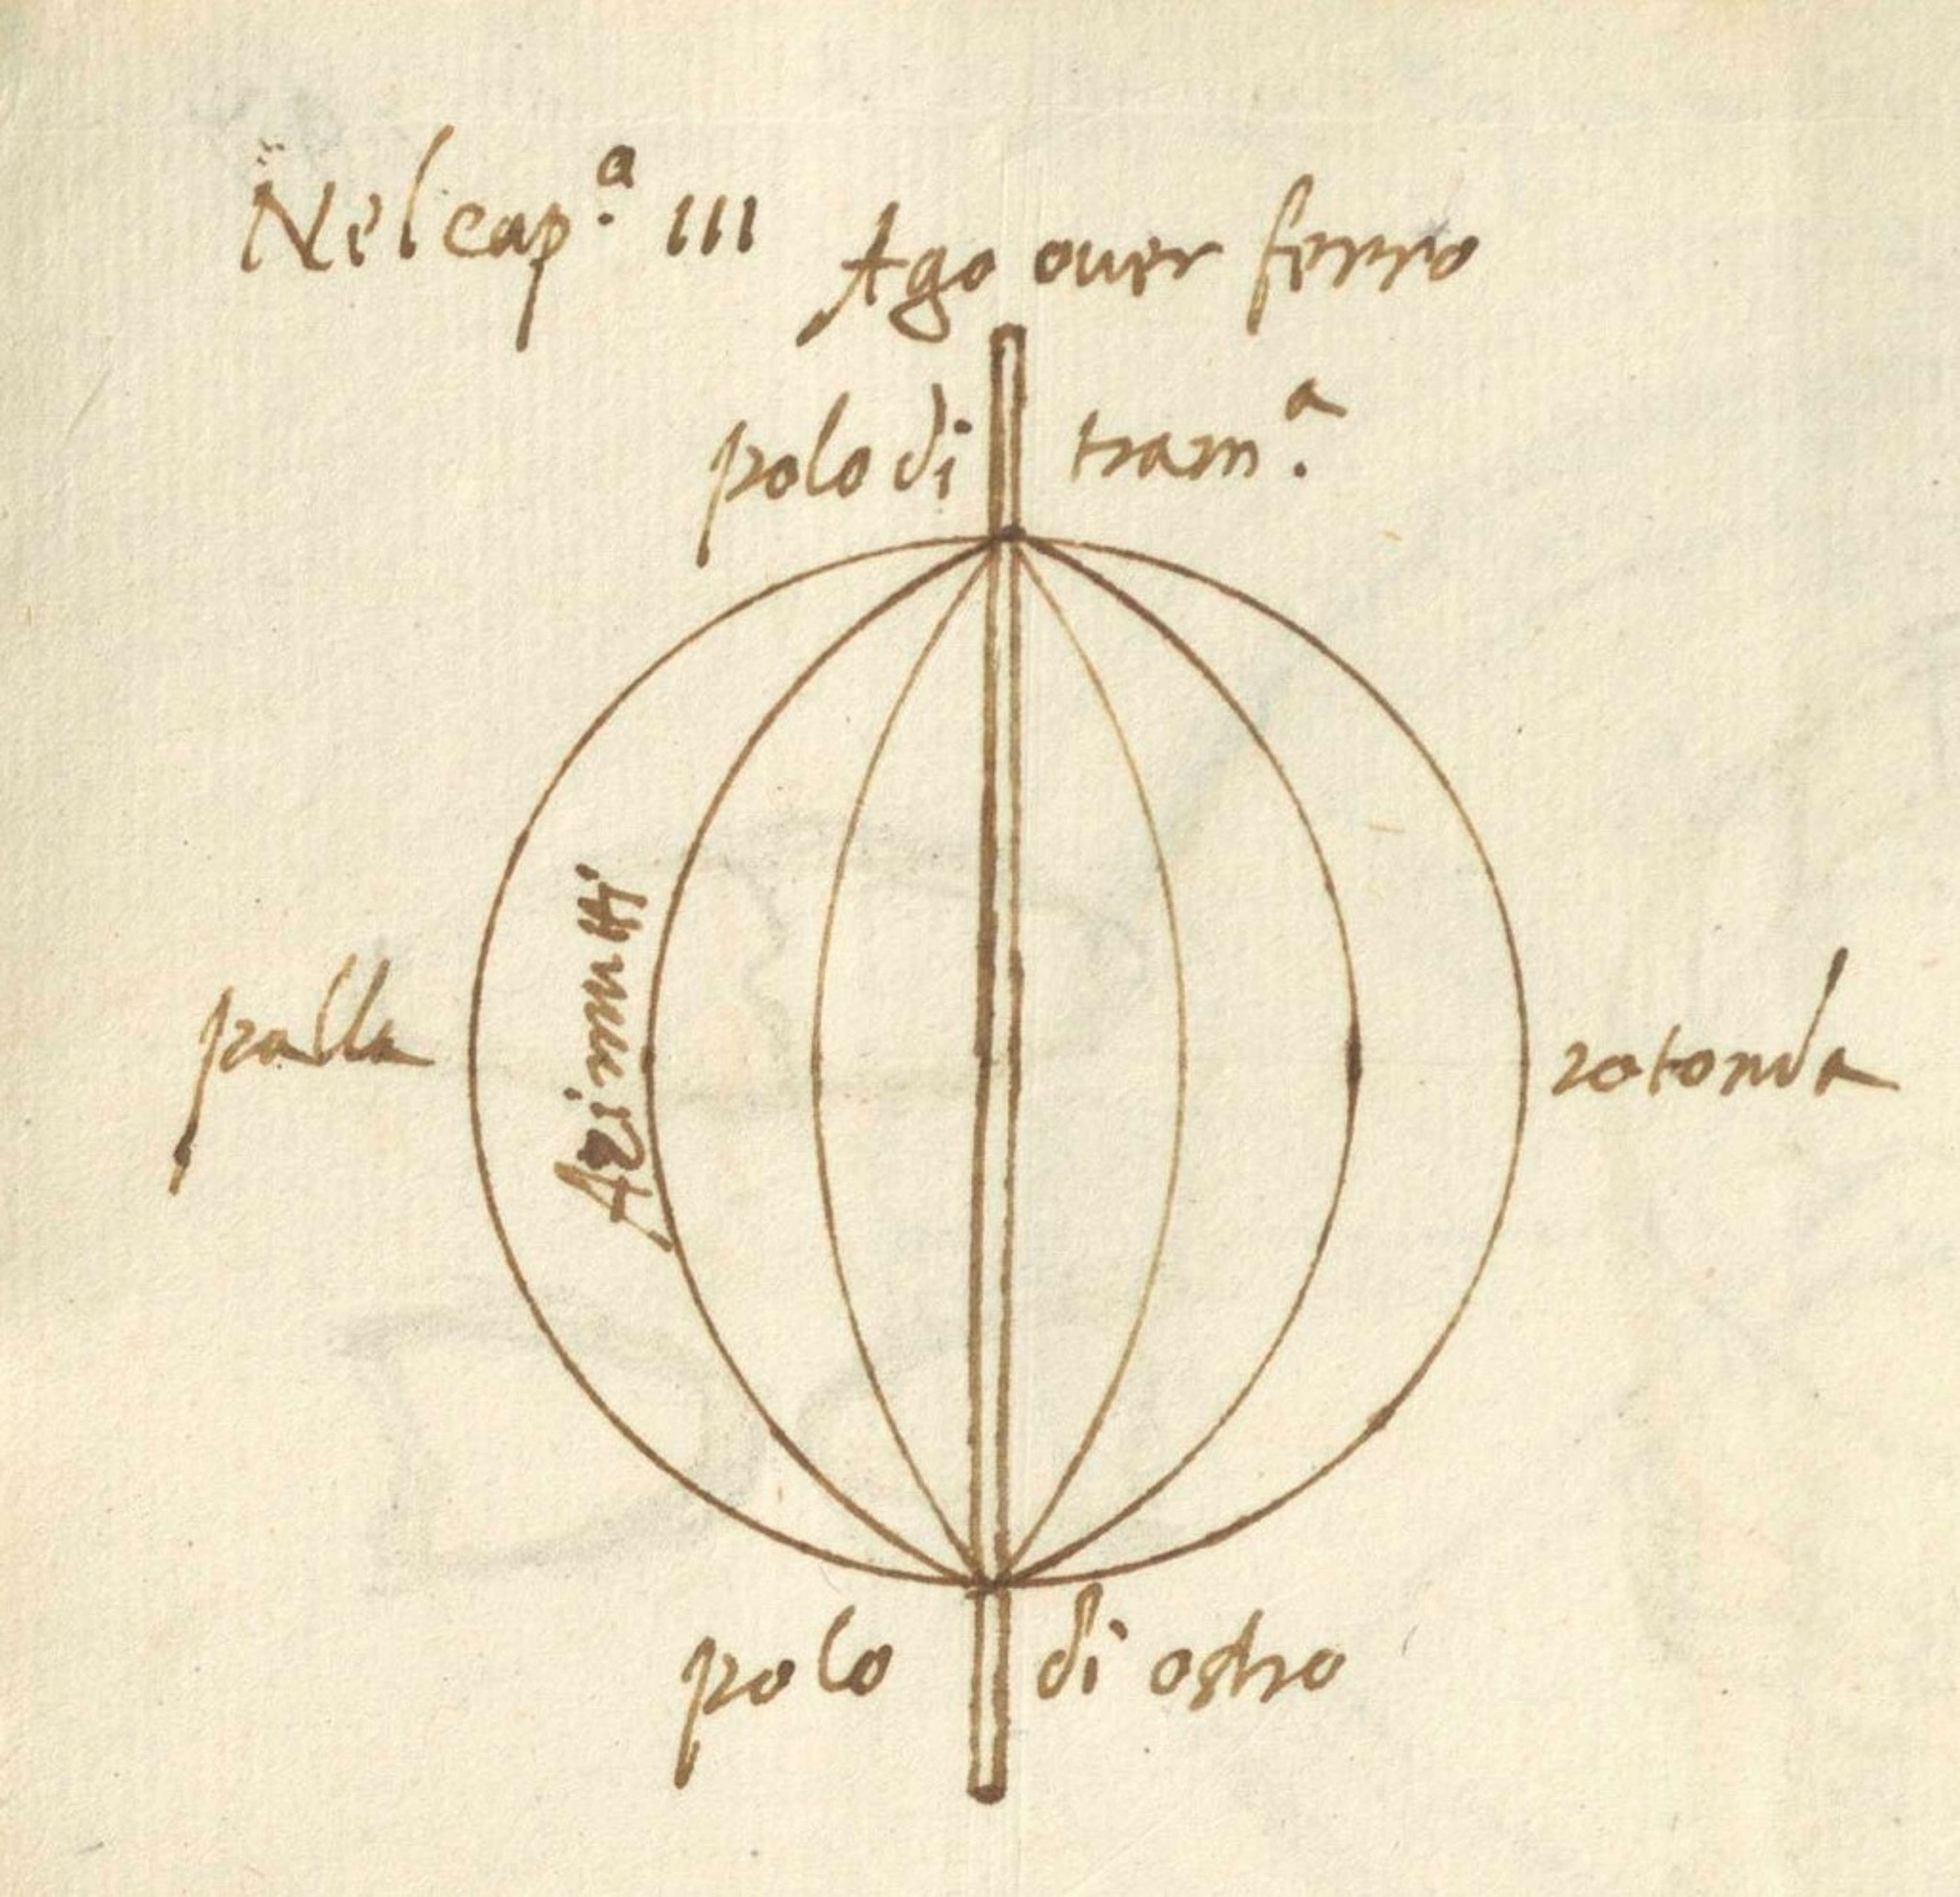 Nel cap.ᵃ III
Ago ouer ferro
polo di tram.ᵃ
Azimutti
palla rotonda
polo di ostro